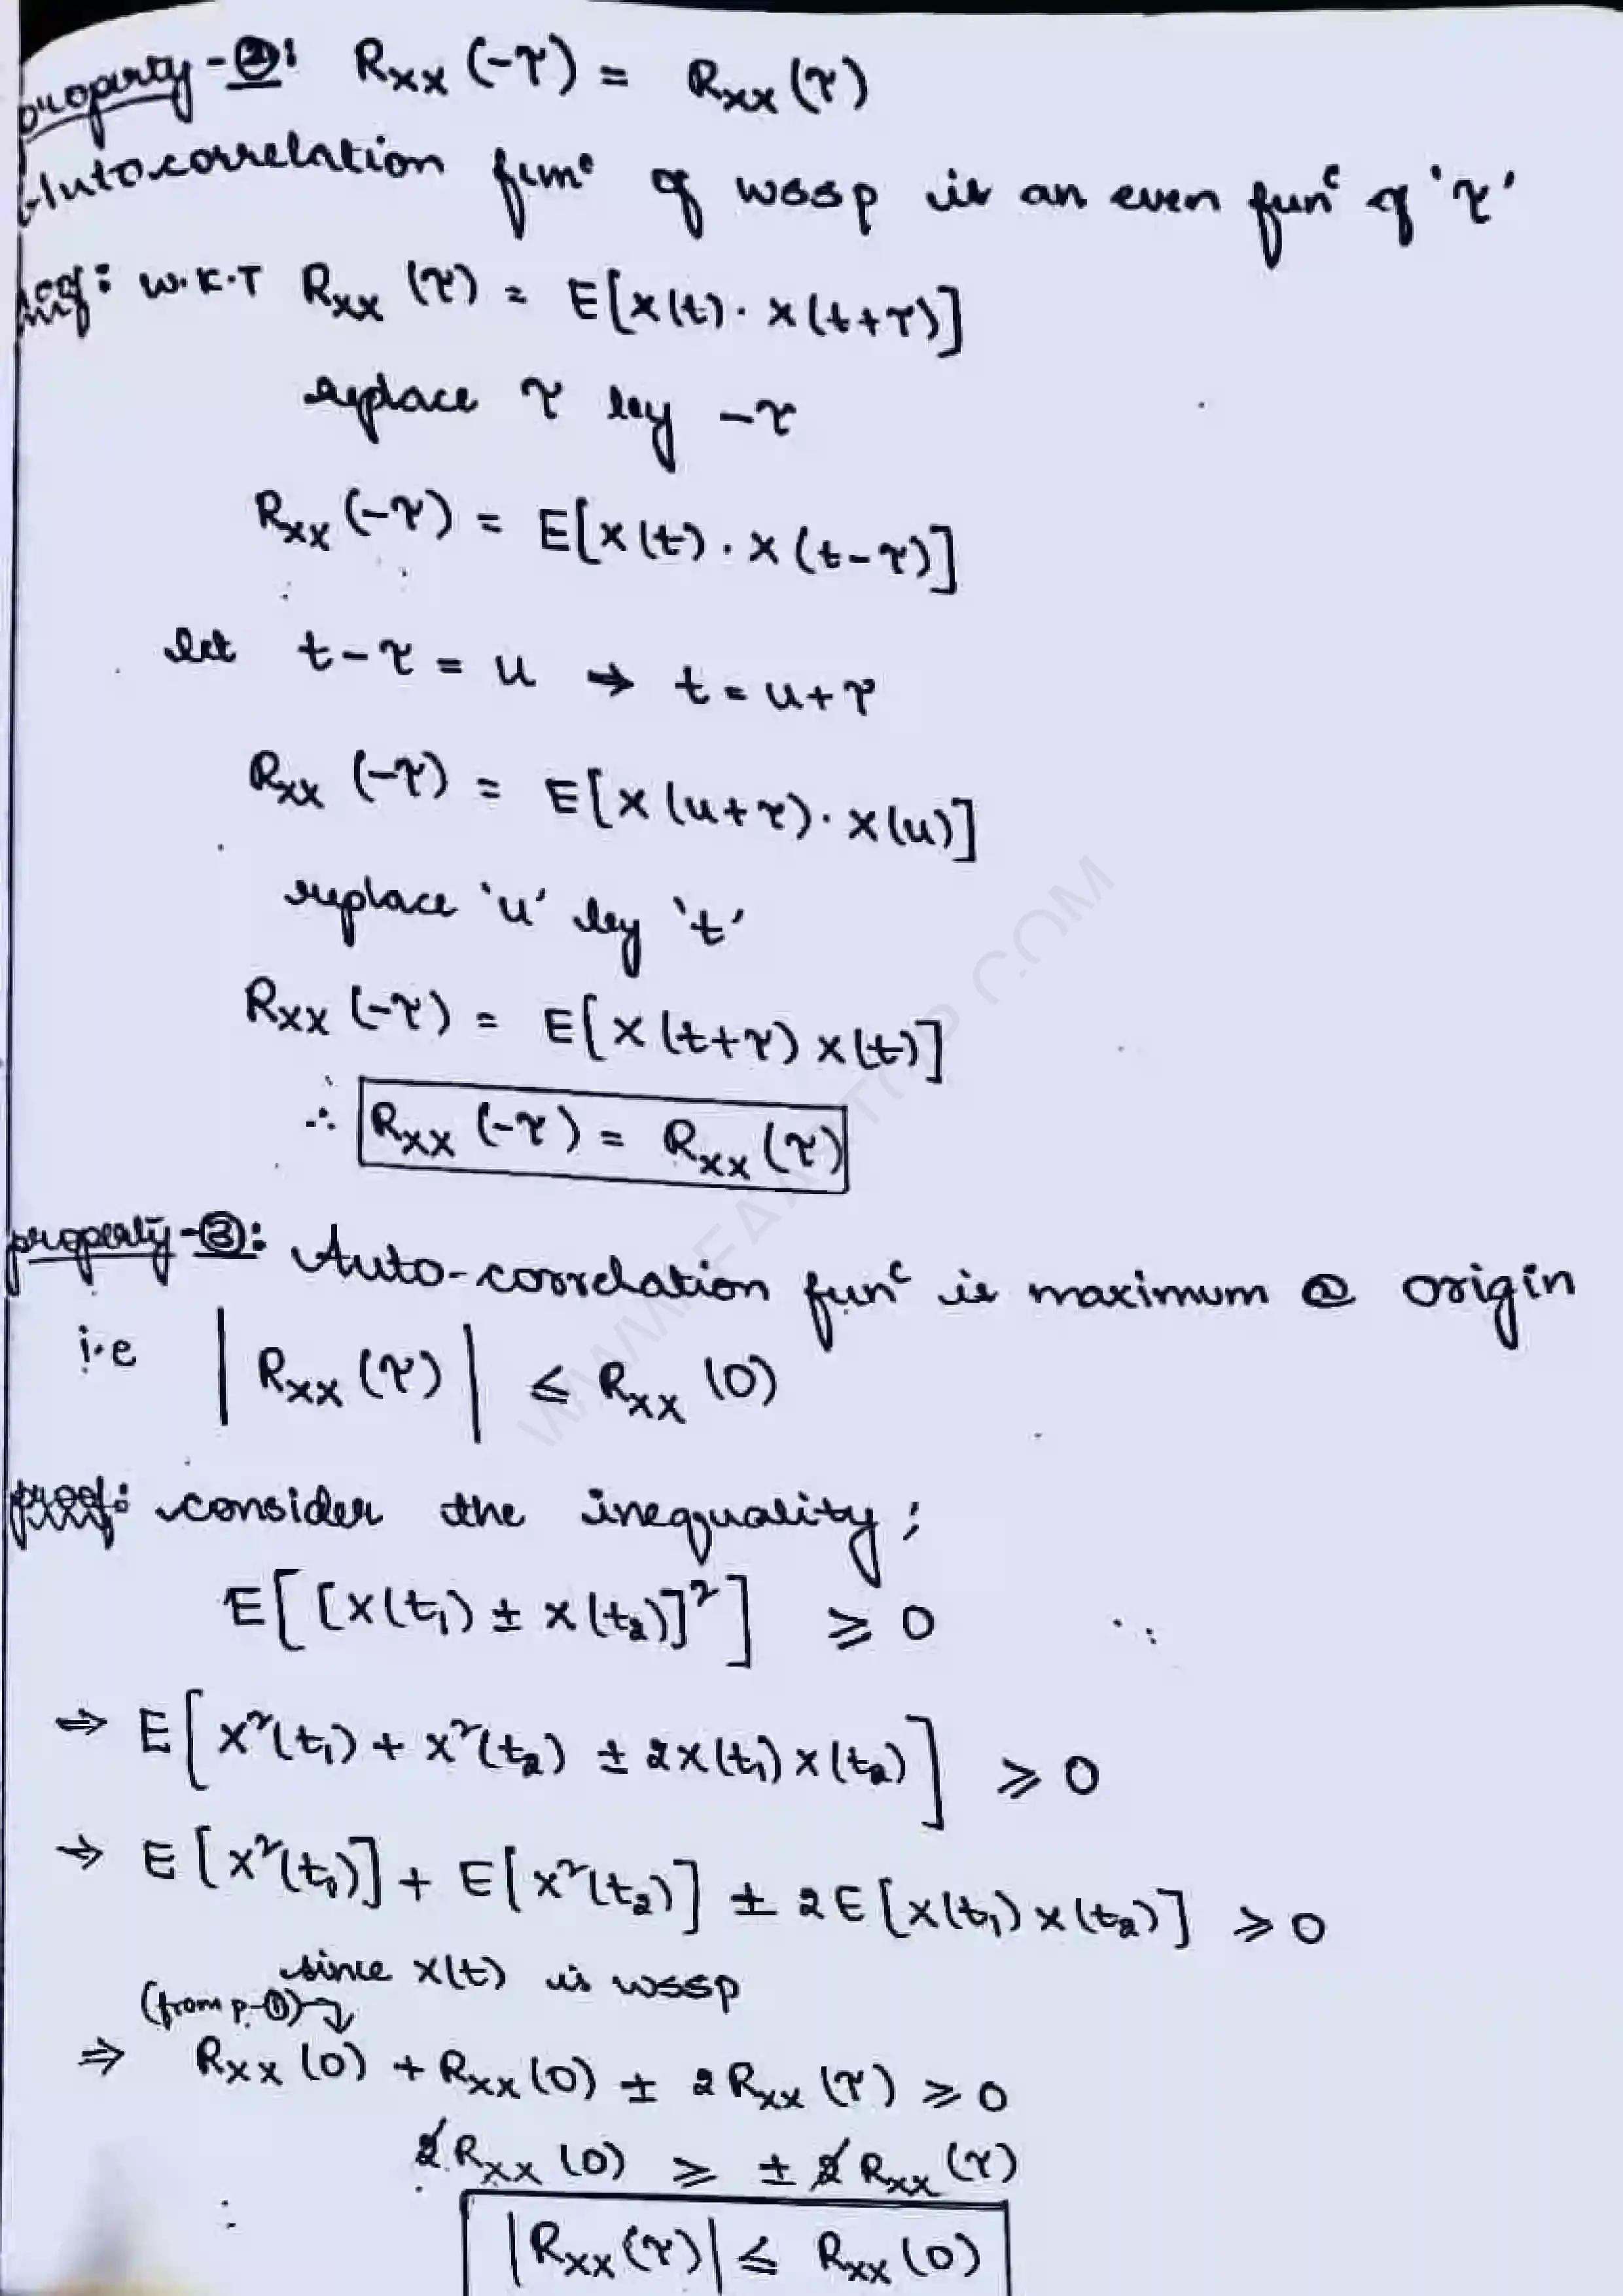 property-②: Rxx (-τ) = Rxx (τ)
Autocorrelation funᶜ of wssp is an even funᶜ of 'τ'
proof: W.K.T Rxx (τ) = E[x(t). x(t+τ)]
replace τ by -τ
Rxx (-τ) = E[x(t). x(t-τ)]
let t-τ = u → t = u+τ
Rxx (-τ) = E[x(u+τ). x(u)]
replace 'u' by 't'
Rxx (-τ) = E[x(t+τ) x(t)]
∴ Rxx (-τ) = Rxx (τ)
property-③: Auto-correlation funᶜ is maximum @ origin
i.e |Rxx (τ)| ≤ Rxx (0)
proof: consider the inequality;
E[[x(t₁) ± x(t₂)]²] ≥ 0
⇒ E[x²(t₁) + x²(t₂) ± 2x(t₁) x(t₂)] ≥ 0
→ E[x²(t₁)] + E[x²(t₂)] ± 2E[x(t₁) x(t₂)] ≥ 0
since x(t) is wssp
(from p-①)
⇒ Rxx (0) + Rxx (0) ± 2 Rxx (τ) ≥ 0
2 Rxx (0) ≥ ± 2 Rxx (τ)
|Rxx (τ)| ≤ Rxx (0)